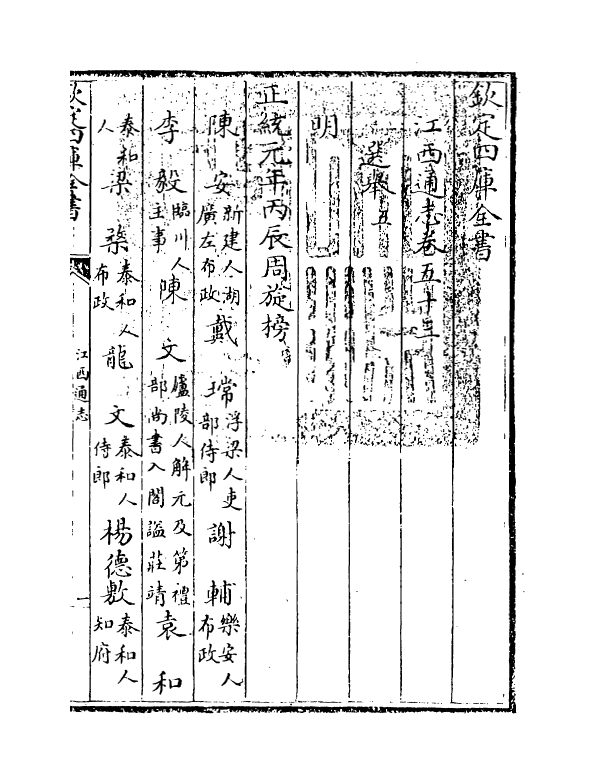 欽定四庫全書
江西通志卷五十三
選舉五
明
正統元年丙辰周旋榜
陳安新建人湖廣左布政戴㻞浮梁人吏部侍郎謝輔樂安人布政
李毅臨川人主事陳文廬陵人解元及第禮部尚書入閣謚莊靖袁和
泰和人梁棨泰和人布政龍文泰和人侍郎楊德敷泰和人知府
欽定四庫全書
江西通志
一